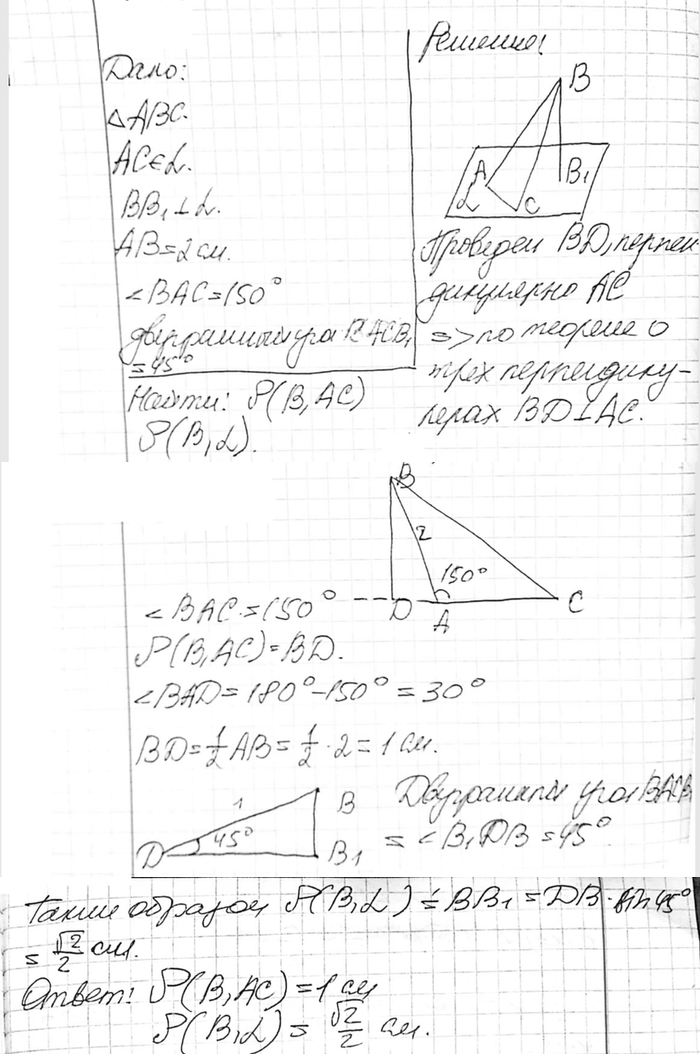 Дано:
△ABC.
AC∈α.
BB₁⊥α.
AB=2см.
∠BAC=150°
двугранный угол BACB₁
=45°
Найти: ρ(B,AC)
ρ(B,α).
Решение:
B
A
B₁
α
C
Проведем BD, перпен-
дикулярно AC
=> по теореме о
трех перпендику-
лярах BD⊥AC.
B
2
150°
D
A
C
∠BAC=150°
ρ(B,AC)=BD.
∠BAD=180°-150°=30°
BD=½AB=½·2=1см.
1
B
45°
D
B₁
Двугранный угол BACB₁
=∠B₁DB=45°
Таким образом ρ(B,α)=BB₁=DB·sin45°
=√2/2 см.
Ответ: ρ(B,AC)=1см
ρ(B,α)=√2/2 см.